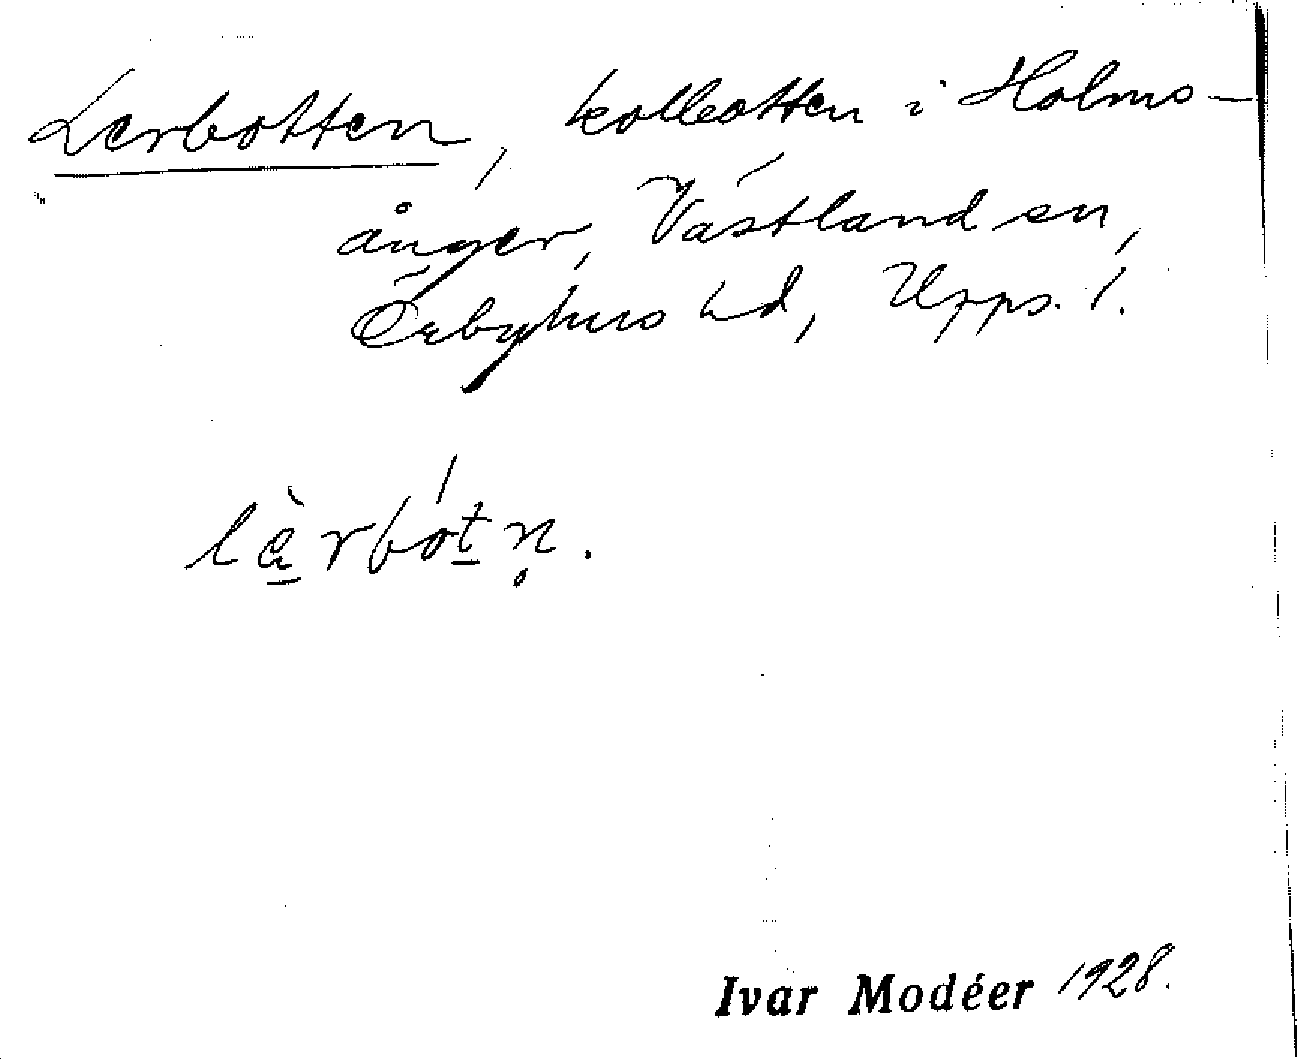 Lerbotten, kolbotten i Holms-
ånger, Västland sn,
Örbyhus hd, Upps. l.
lèrbótn.
Ivar Modéer 1928.